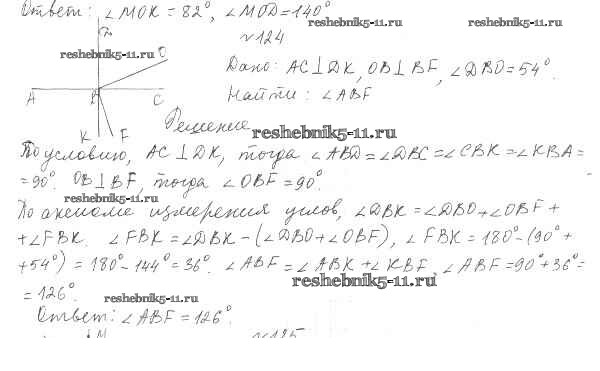 Ответ: ∠MOK = 82°, ∠MOD = 140°
reshebnik5-11.ru
reshebnik5-11.ru
№124
reshebnik5-11.ru
O
Дано: AC⊥DK, OB⊥BF, ∠DBO = 54°.
Найти: ∠ABF
A B C
K F
Решение
reshebnik5-11.ru
По условию, AC⊥DK, тогда ∠ABD = ∠DBC = ∠CBK = ∠KBA =
= 90°. OB⊥BF, тогда ∠OBF = 90°.
reshebnik5-11.ru
По аксиоме измерения углов, ∠DBK = ∠DBO + ∠OBF +
+ ∠FBK. ∠FBK = ∠DBK - (∠DBO + ∠OBF), ∠FBK = 180° - (90° +
+ 54°) = 180° - 144° = 36°. ∠ABF = ∠ABK + ∠KBF, ∠ABF = 90° + 36° =
reshebnik5-11.ru
= 126°.
reshebnik5-11.ru
Ответ: ∠ABF = 126°.
M